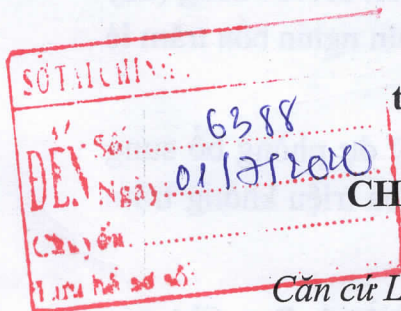 SỞ TÀI CHÍNH
ĐẾN
Số: 6388
Ngày: 01/7/2020
Chuyển
Lưu hồ sơ số:
t
CH
Căn cứ L